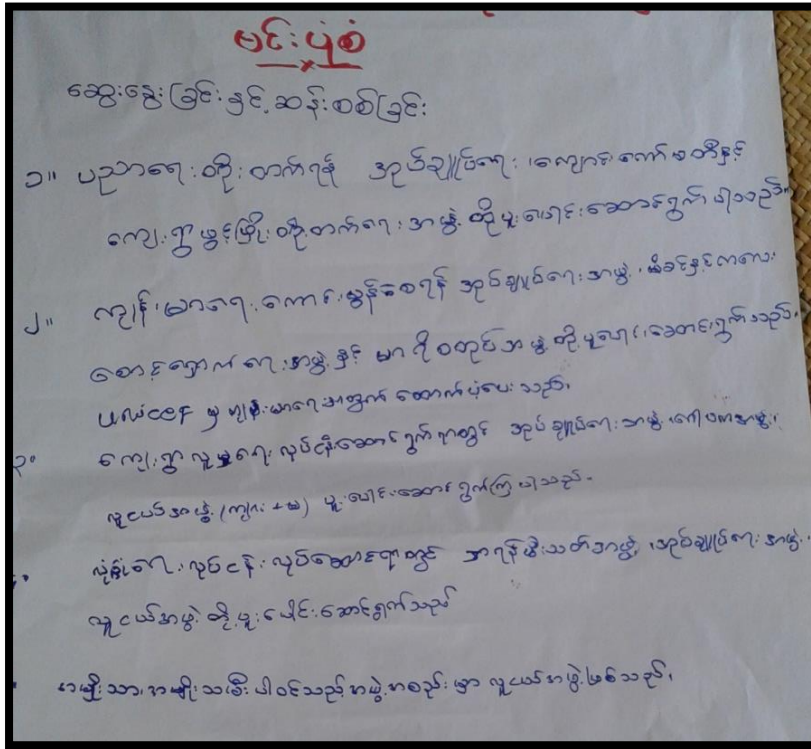 မင်းပုံစံ
ဆွေးနွေးခြင်းနှင့် ဆန်းစစ်ခြင်း
၁။ ပညာရေး တိုးတက်ရန် အုပ်ချုပ်ရေး၊ ကျောင်းကော်မတီနှင့်
ကျေးရွာဖွံ့ဖြိုးတိုးတက်ရေးအဖွဲ့ တို့ပူးပေါင်းဆောင်ရွက်ပါသည်။
၂။ ကျန်းမာရေး ကောင်းမွန်စေရန် အုပ်ချုပ်ရေးအဖွဲ့၊ မိခင်နှင့်ကလေး
စောင့်ရှောက်ရေးအဖွဲ့နှင့် အဖွဲ့တို့ ပူးပေါင်းဆောင်ရွက်သည်။
မှ ကျန်းမာရေးအတွက် ထောက်ပံ့ပေးသည်။
၃။ ကျေးရွာလူမှုရေးလုပ်ငန်းဆောင်ရွက်ရာတွင် အုပ်ချုပ်ရေးအဖွဲ့၊
လူငယ်အဖွဲ့ (ကျား + မ) ပူးပေါင်းဆောင်ရွက်ကြပါသည်။
လုံခြုံရေးလုပ်ငန်း လုပ်ဆောင်ရာတွင် အရန်မီးသတ်အဖွဲ့၊ အုပ်ချုပ်ရေးအဖွဲ့၊
လူငယ်အဖွဲ့တို့ ပူးပေါင်းဆောင်ရွက်သည်
အမျိုးသား၊ အမျိုးသမီး ပါဝင်သည့်အဖွဲ့အစည်းမှာ လူငယ်အဖွဲ့ဖြစ်သည်။